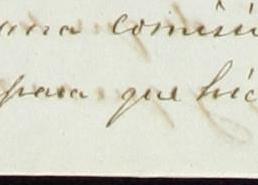 una comisi
para que hic